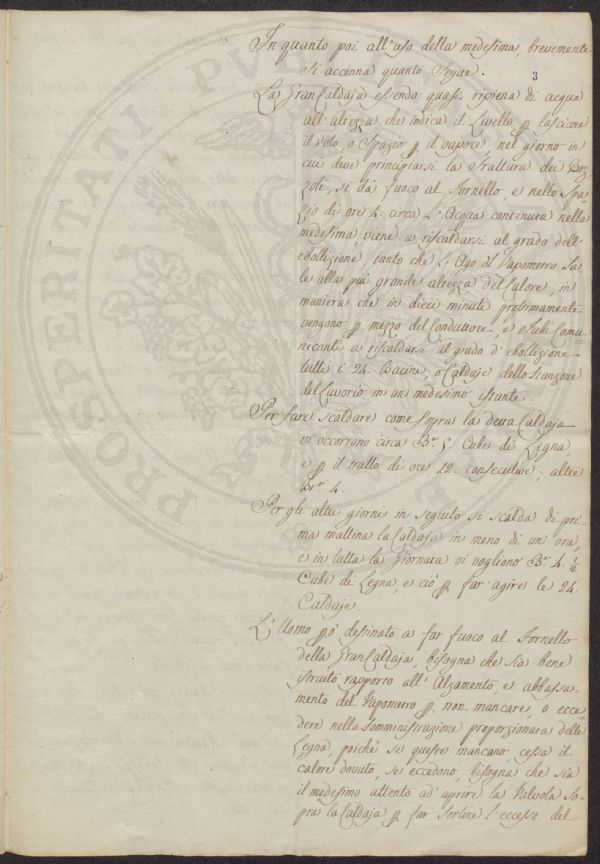 In quanto poi all'uso della medesima, brevemente
si accenna quanto segue.
3
La Gran Caldaja essendo quasi ripiena di acqua
all'altezza che indica il Livello p lasciare
il voto, o Spazio p il vapore, nel giorno in
cui deve principiarsi la trattura dei Boz-
zoli, si dà fuoco al Fornello, e nello Spa-
zio di ore 4. circa L'Acqua contenuta nella
medesima, viene a riscaldarsi al grado dell'
ebollizione, tanto che L'Ago del Vapometro Sa-
le alla più grande altezza del Calore, in
maniera che in dieci minuti prossimamente
vengano p mezzo del Conduttore, e Tubi Comu-
nicanti a riscaldarsi al grado d'ebollizione
tutti i 24. Bacini, o Caldaje dello Stanzone
del Lavorio in un medesimo istante.
Per fare scaldare come sopra la detta Caldaja
vi occorrono circa Bra 5. Cube di Legna,
e p il tratto di ore 12. consecutive, altre
Bra 4.
Per gli altri giorni in seguito si scalda di pri-
ma mattina la Caldaja in meno di un'ora,
e in tutta la Giornata vi vogliono Bra 4. 1/2
Cube di Legna, e ciò p far'agire le 24.
Caldaje.
L'Uomo pò destinato a far fuoco al Fornello
della Gran Caldaja, bisogna che sia bene
istruito rapporto all'Alzamento, e abbassa-
mento del Vapometro p non mancare, o ecce-
dere nella Somministrazione proporzionata della
Legna, poichè se queste mancano, cessa il
calore dovuto, se eccedono, bisogna che sia
il medesimo attento ad'aprire la Valvola So-
pra la Caldaja p far sortire l'eccesso del
PROSPERITATI PVB